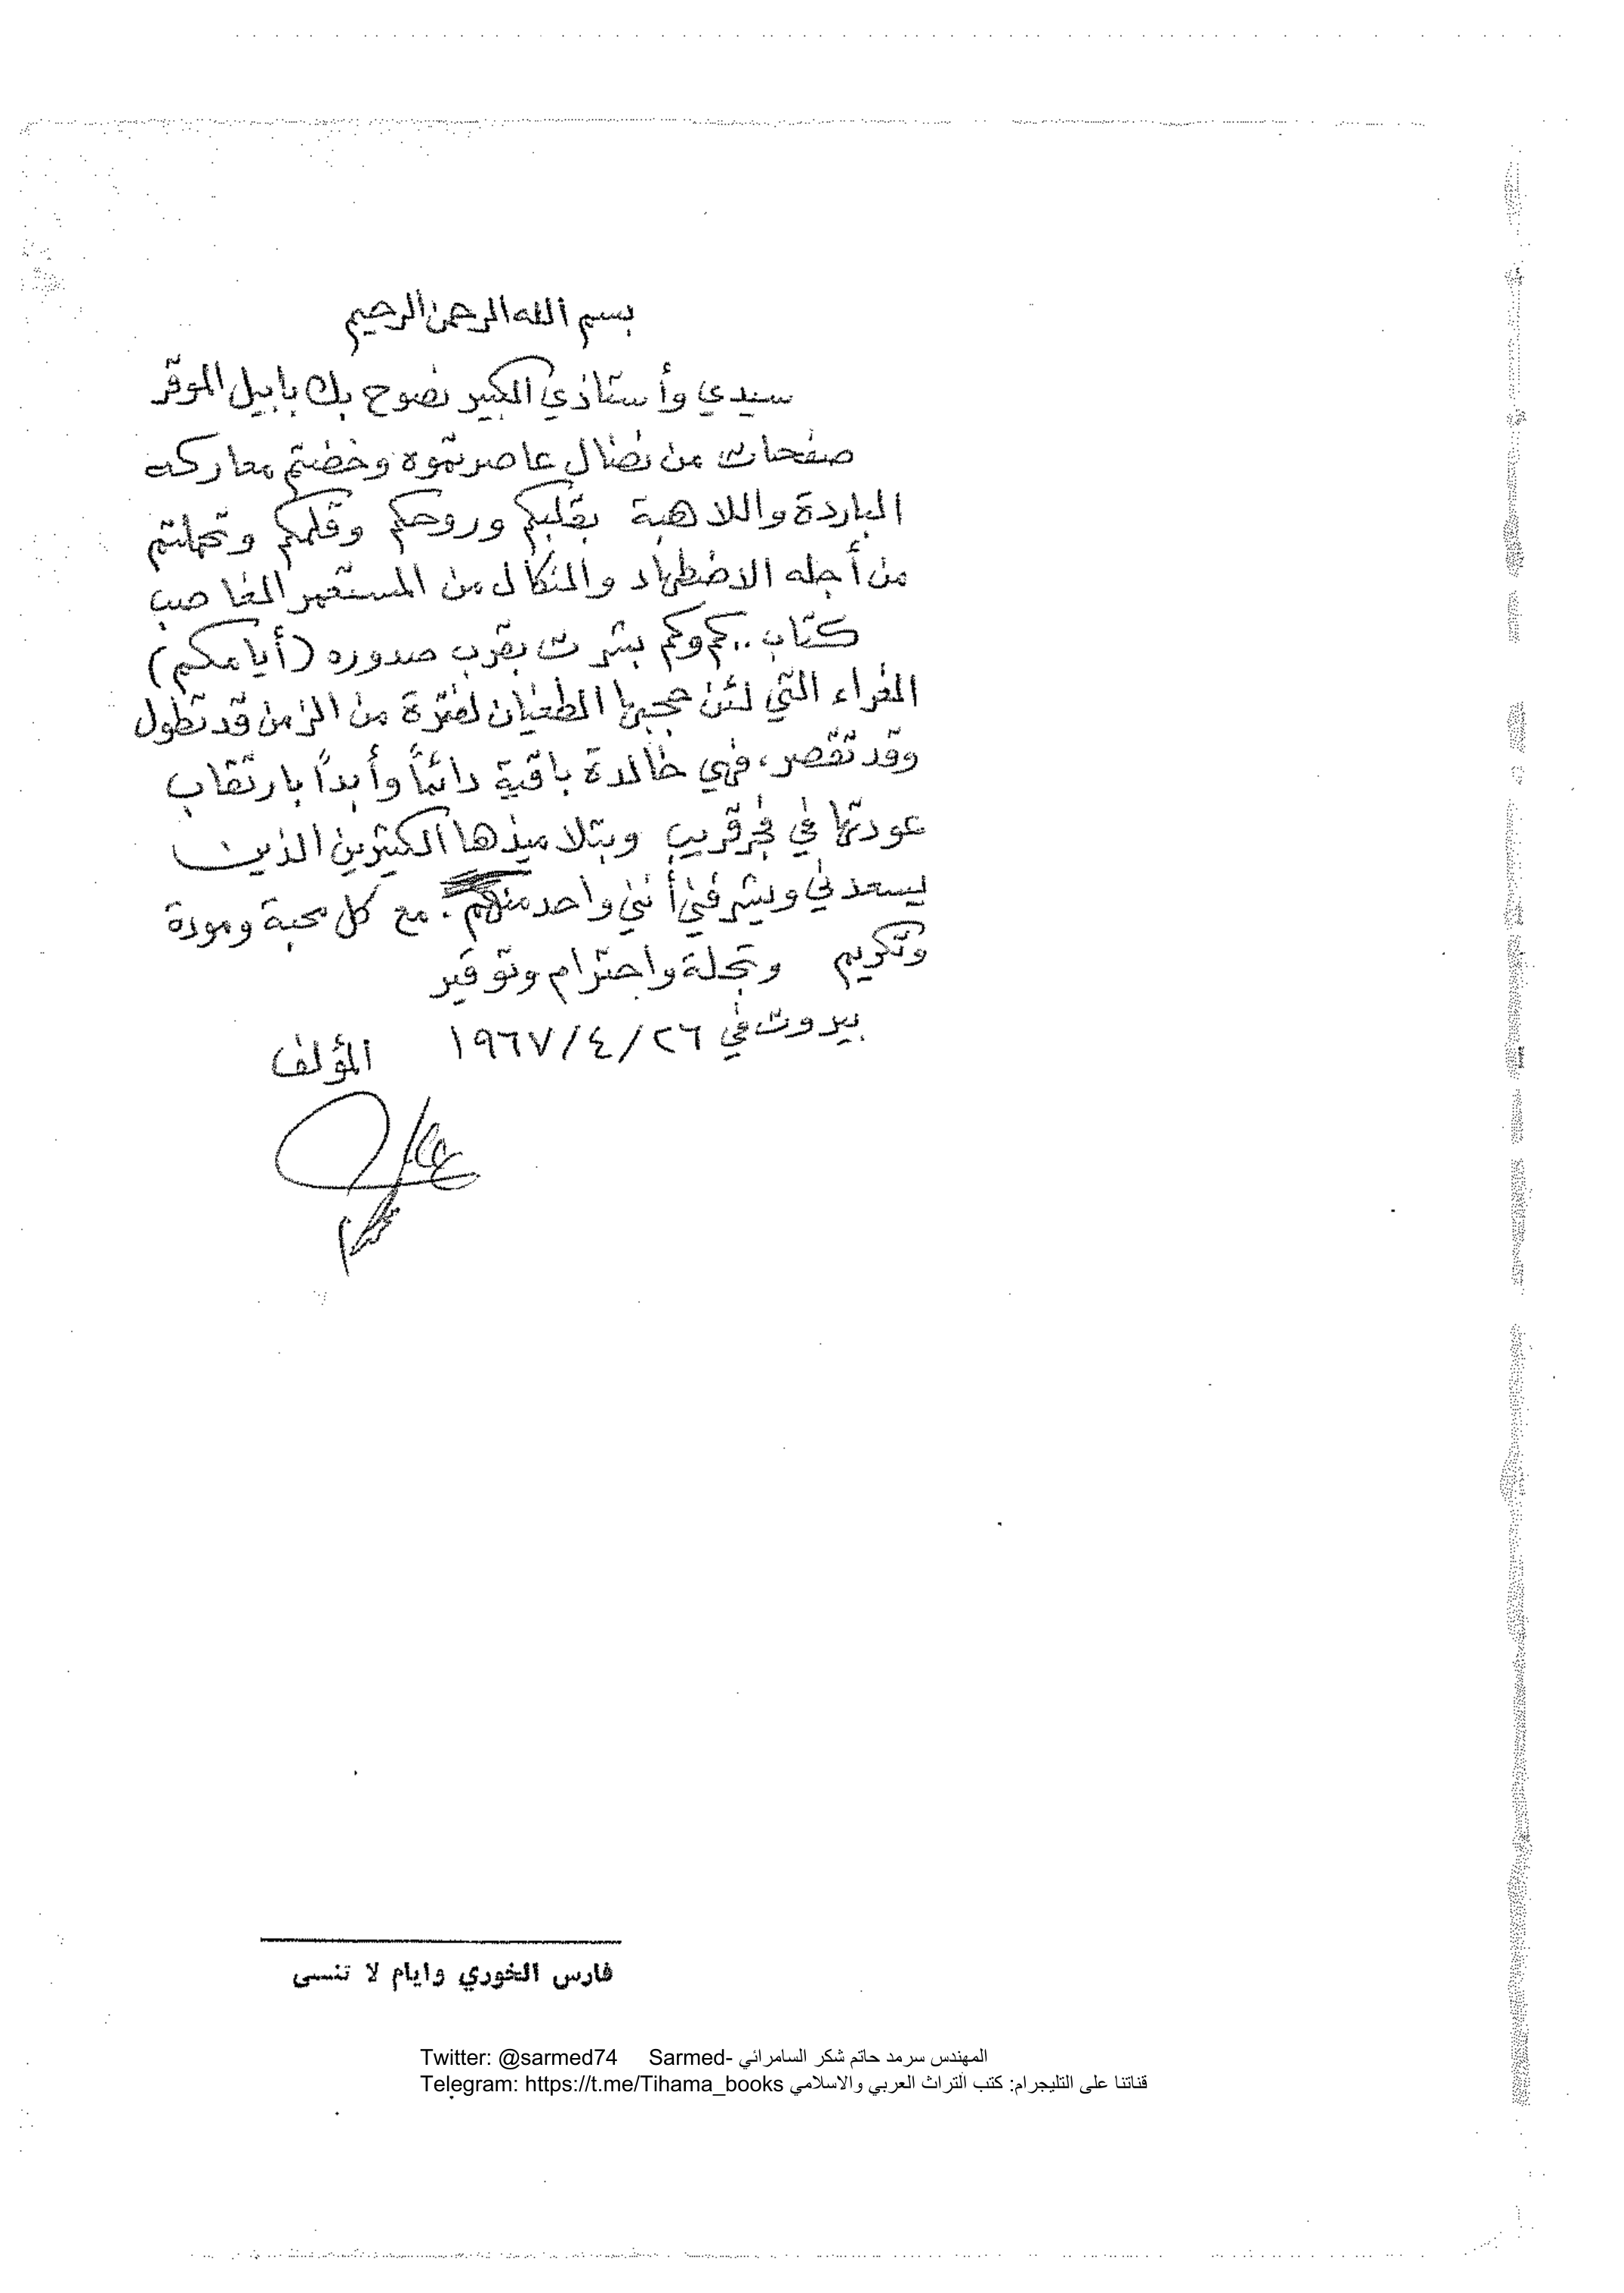 بسم الله الرحمن الرحيم
سيدي وأستاذي الكبير نصوح بك بابيل الموقر
صفحات من نضال عاصرتموه وخضتم معاركه
الباردة واللاهبة بقلبكم وروحكم وقلمكم وتحملتم
من أجله الاضطهاد والنكال من المستعمر الغاصب
كتاب .. كم وكم بشرت بقرب صدوره (أيامكم)
الغراء التي لئن حجبها الطغيان لفترة من الزمن قد تطول
وقد تقصر، فهي خالدة باقية دائماً وأبداً بارتقاب
عودتها في فجر قريب وبتلاميذها الكثيرين الذين
يسعدني ويشرفني أنني واحد منهم. مع كل محبة ومودة
وتكريم وتجلة واحترام وتوقير
بيروت في ٢٦/٤/١٩٦٧ المؤلف
فارس الخوري وايام لا تنسى
Twitter: @sarmed74 Sarmed- المهندس سرمد حاتم شكر السامرائي
Telegram: https://t.me/Tihama_books قناتنا على التليجرام: كتب التراث العربي والاسلامي